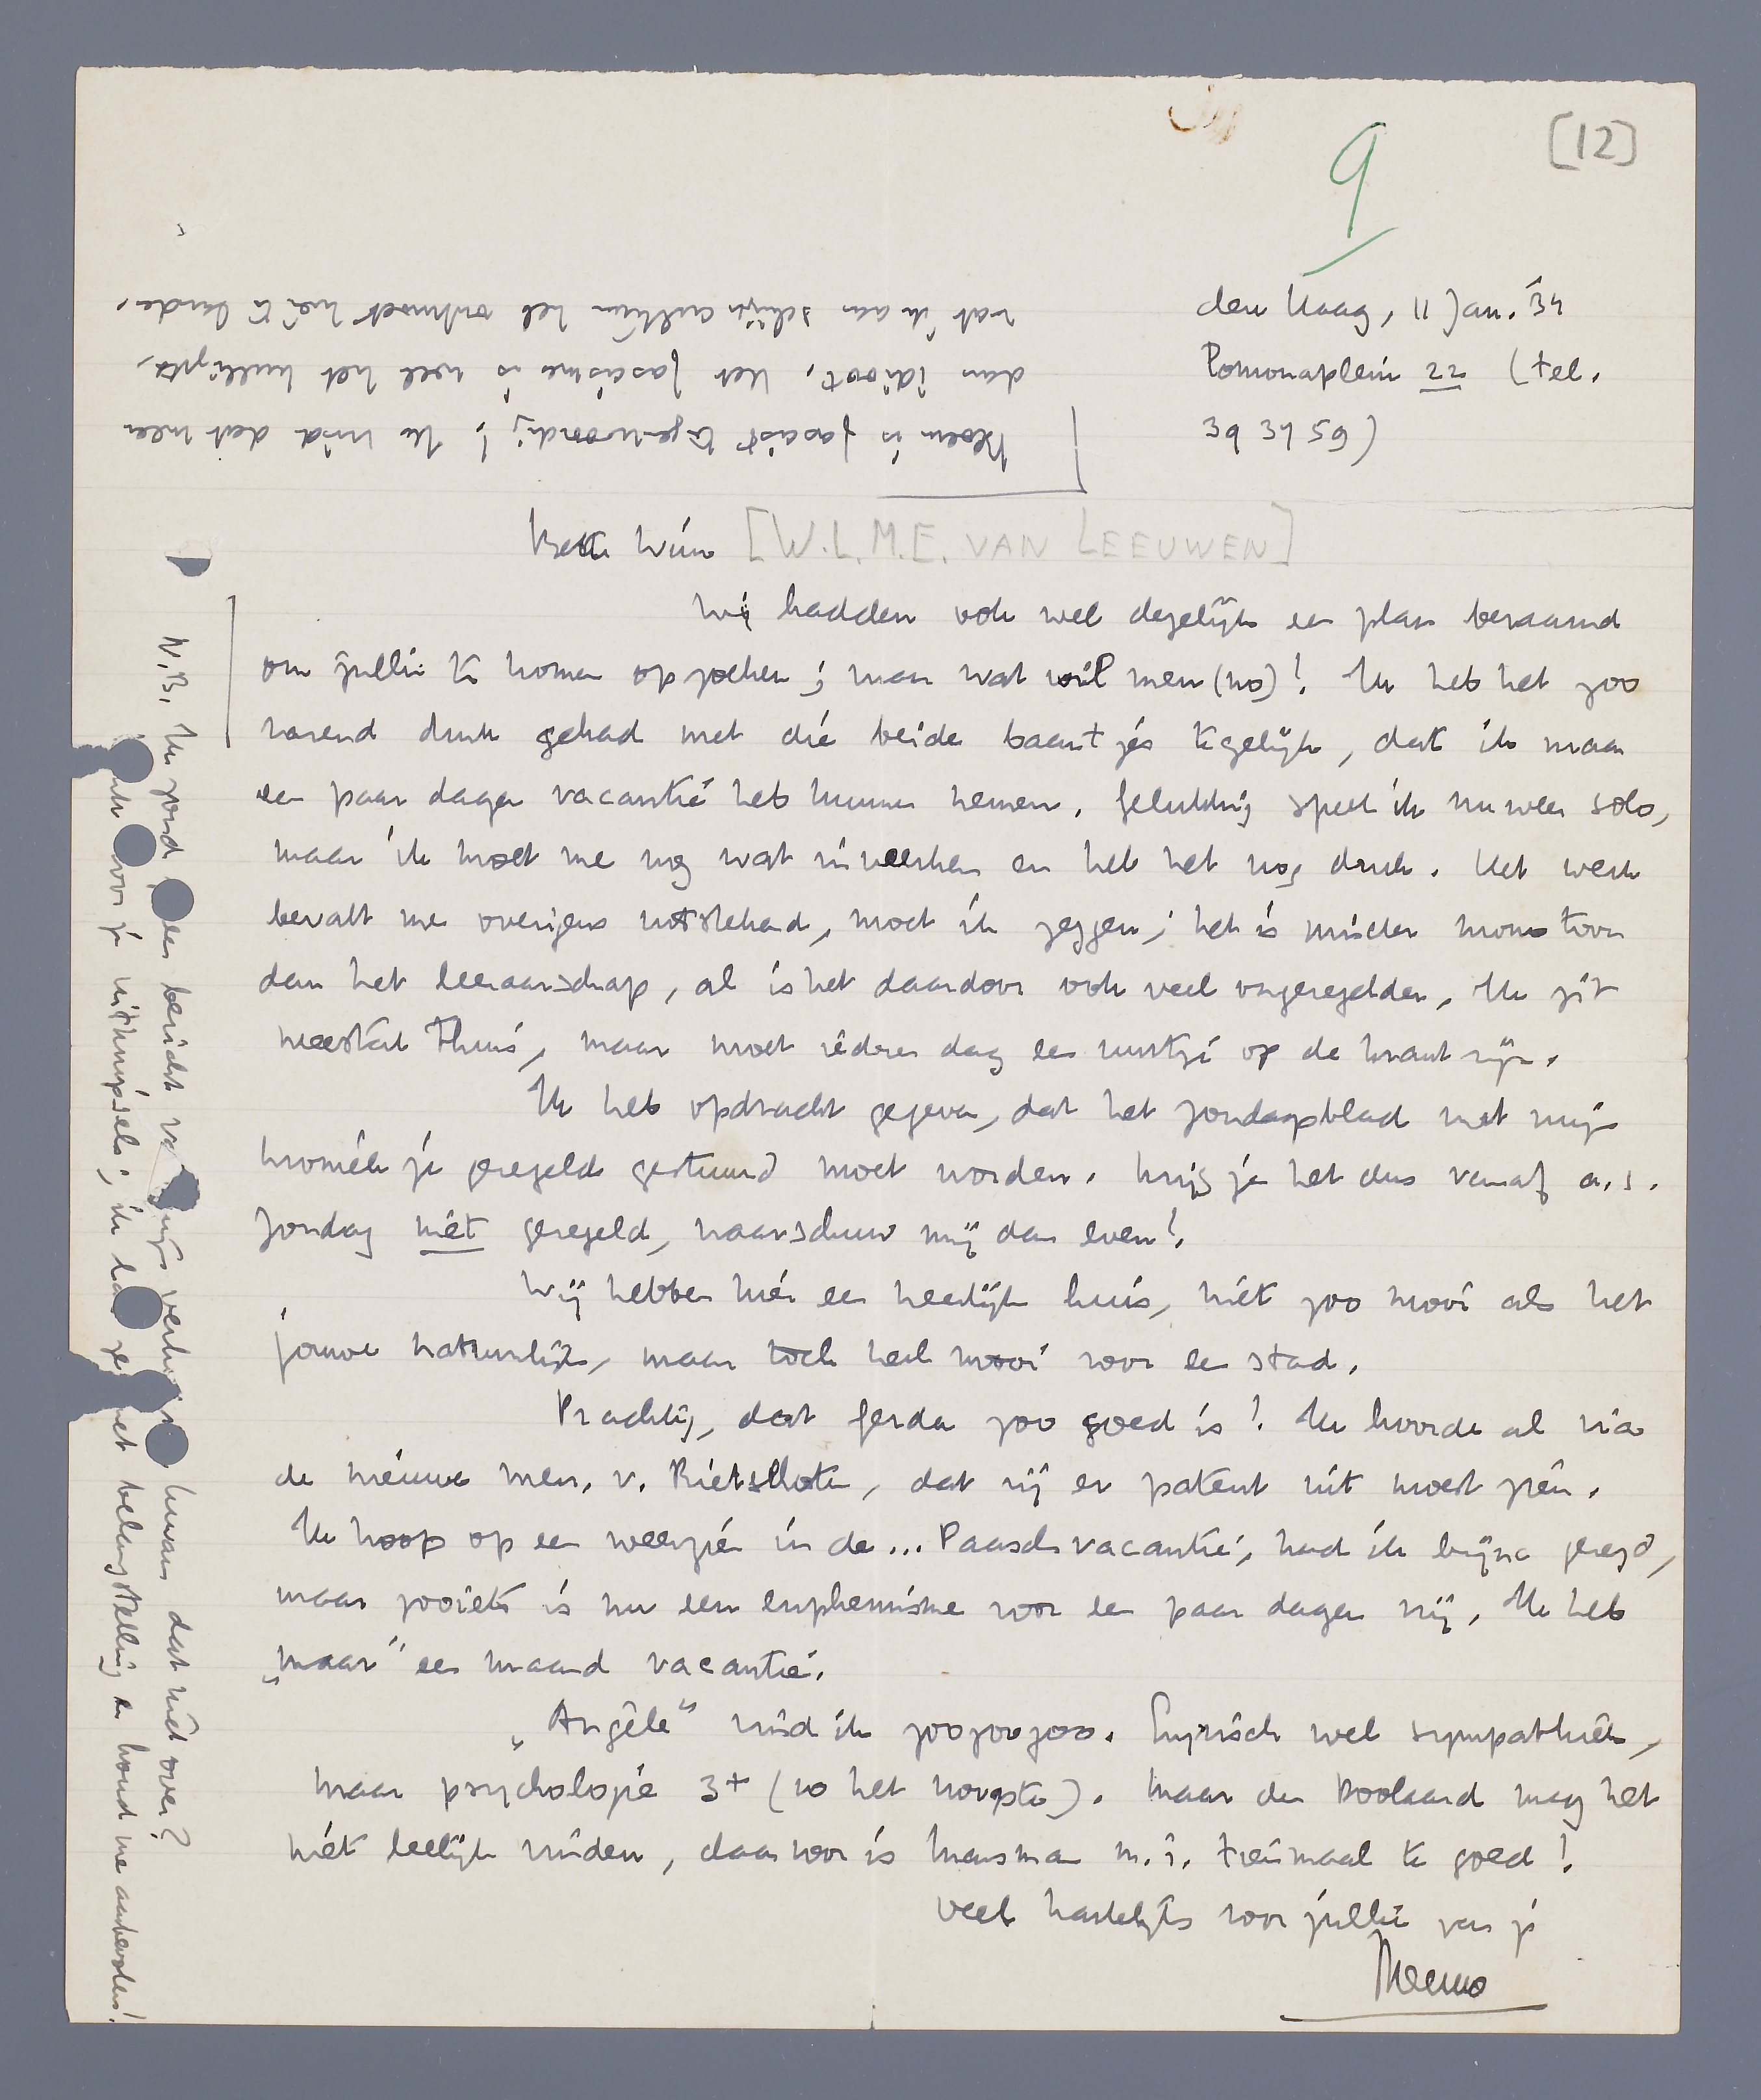 [12]
9
den Haag, 11 Jan. '34
Pomonaplein 22 (tel.
393759)
Beste Wim [W.L.M.E. VAN LEEUWEN]
Wij hadden ook wel degelijk een plan beraamd
om jullie te komen opzoeken; maar wat wil men (no)! Ik heb het zoo
razend druk gehad met die beide baantjes tegelijk, dat ik maar
een paar dagen vacantie heb kunnen nemen. Gelukkig speel ik nu weer solo,
maar ik moet me nog wat inwerken en heb het nog druk. Het werk
bevalt me overigens uitstekend, moet ik zeggen; het is minder monotoon
dan het leeraarschap, al is het daardoor ook veel ongeregelder. Ik zit
meestal thuis, maar moet iedere dag een uurtje op de krant zijn.
Ik heb opdracht gegeven, dat het zondagsblad met mijn
kroniek je geregeld gestuurd moet worden. Krijg je het dus vanaf a.s.
Zondag niet geregeld, waarschuw mij dan even!
Wij hebben hier een heerlijk huis, niet zoo mooi als het
jouwe natuurlijk, maar toch heel mooi voor een stad.
Prachtig, dat Ferda zoo goed is! Ik hoorde al via
de nieuwe mevr. v. Rietschoten, dat zij er patent uit moest zien.
Ik hoop op een weerzien in de... Paaschvacantie, had ik bijna gezegd,
maar zooiets is nu een euphemisme voor een paar dagen vrij. Ik heb
„maar" een maand vacantie.
„Angèle" vind ik zoozoozoo. Lyrisch wel sympathiek,
maar psychologie 3+ (10 het hoogste). Maar den Doolaard mag het
niet leelijk vinden, daarvoor is Marsman m.i. tienmaal te goed!
Veel hartelijks voor jullie van je
Menno
N.B. Ik zond een bericht verhuizen dat niet over?
voor je uitknipsels; ik het belangstelling en houd me aanbevolen!
Bloem is fascist tegenwoordig! Ik vind dat meer
dan idioot. Het fascisme is wel het nulligste,
wat ik aan schijn-cultuur heb ontmoet hier te lande.